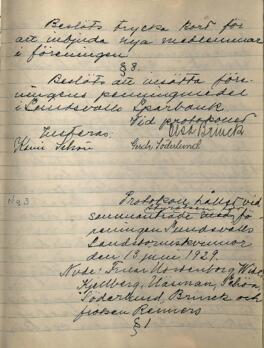 Beslöts trycka kort för
att inbjuda nya medlemmar
i föreningen.
§ 8.
Beslöts att insätta före-
ningens penningmedel
i Sundsvalls Sparbank
Vid protokollet
Justeras: Brunck
Söderlund
No 3 Protokoll hållet vid
sammanträde med fö-
reningen Sundsvalls
Landstormskvinnor
den 13 juni 1929.
Närv: Fruar
Kjellberg,
Söderlund, Brunck och
fröken Renners
§ 1